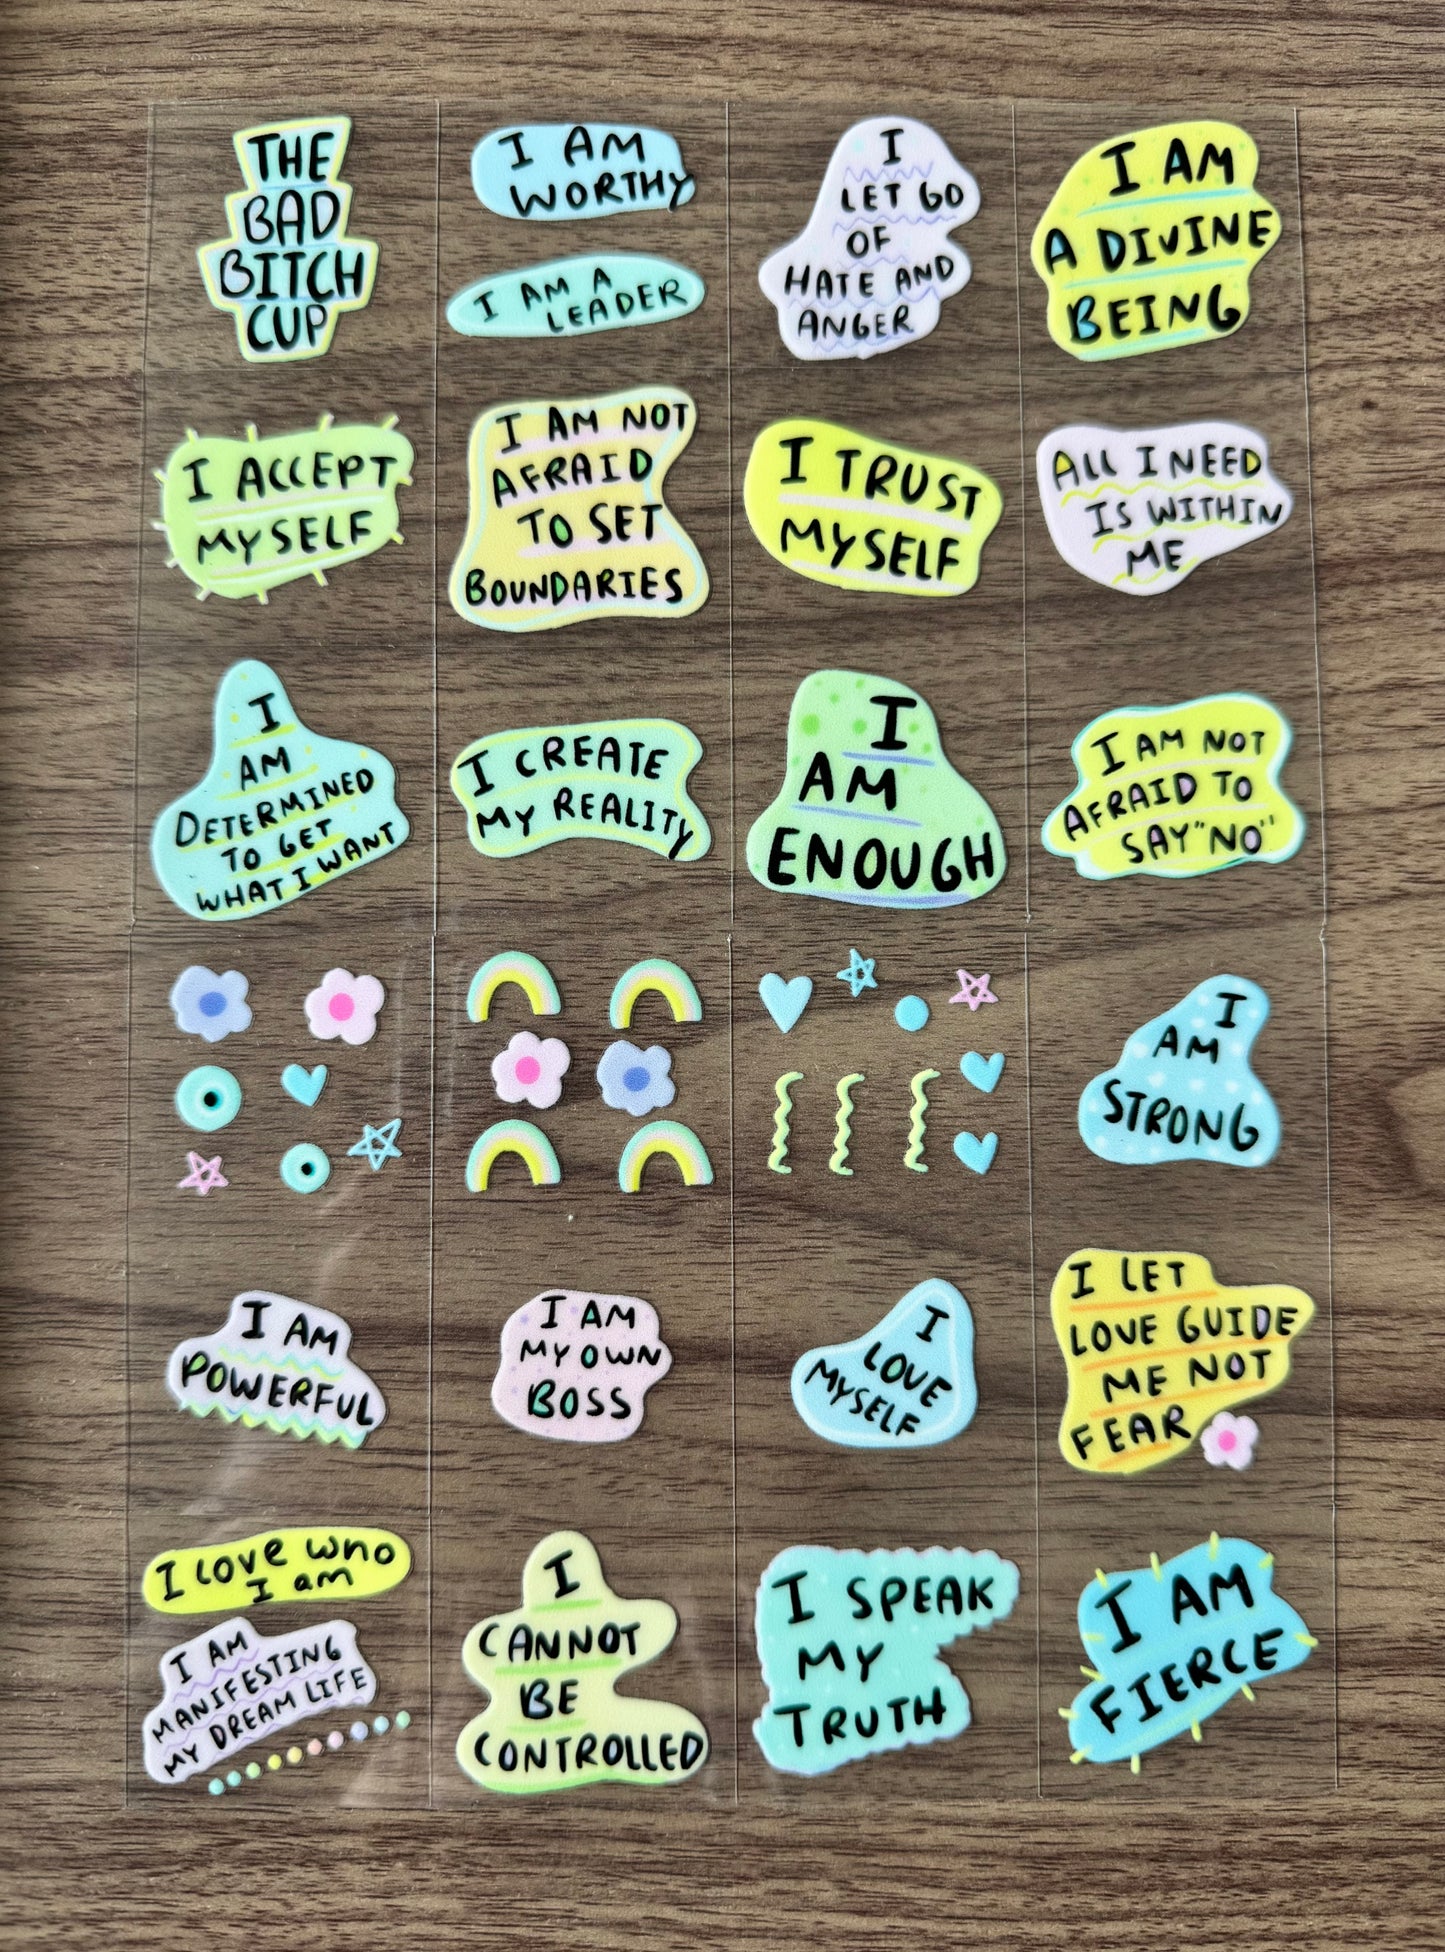 THE
BAD
BITCH
CUP
I AM
WORTHY
I AM A
LEADER
I
LET GO
OF
HATE AND
ANGER
I AM
A DIVINE
BEING
I ACCEPT
MYSELF
I AM NOT
AFRAID
TO SET
BOUNDARIES
I TRUST
MYSELF
ALL I NEED
IS WITHIN
ME
I
AM
DETERMINED
TO GET
WHAT I WANT
I CREATE
MY REALITY
I
AM
ENOUGH
I AM NOT
AFRAID TO
SAY "NO"
I
AM
STRONG
I AM
POWERFUL
I AM
MY OWN
BOSS
I
LOVE
MYSELF
I LET
LOVE GUIDE
ME NOT
FEAR
I LOVE WHO
I am
I AM
MANIFESTING
MY DREAM LIFE
I
CANNOT
BE
CONTROLLED
I SPEAK
MY
TRUTH
I AM
FIERCE